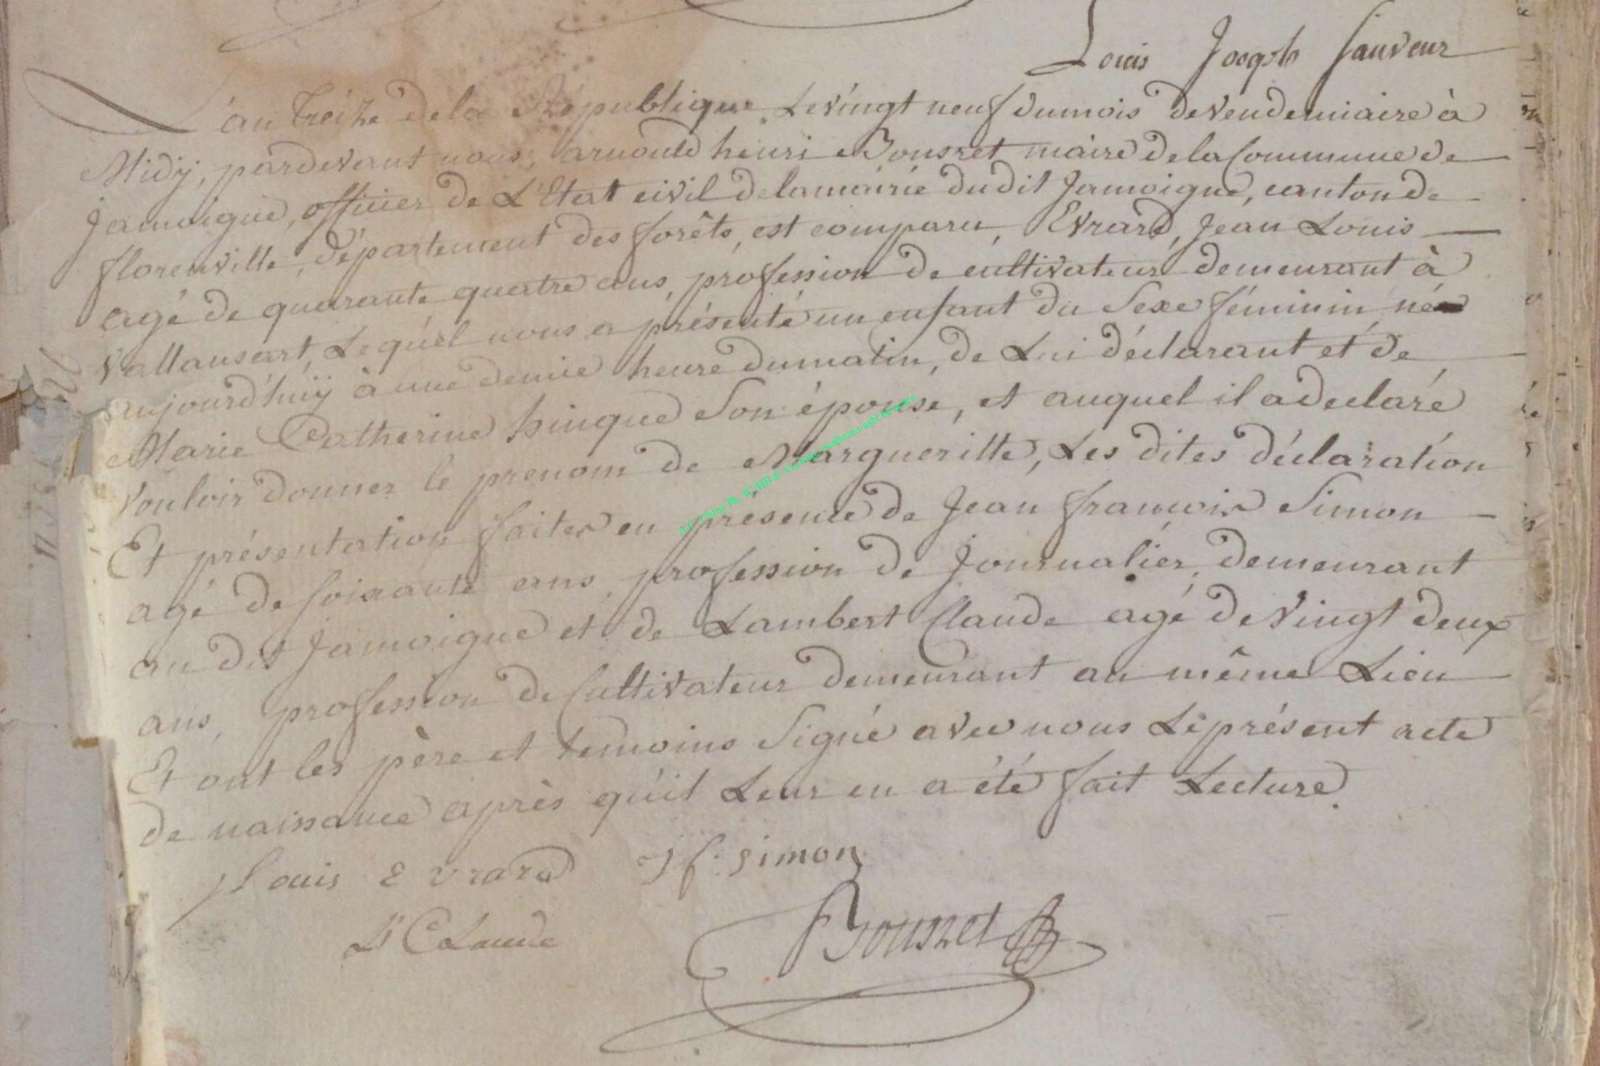 Louis Joseph Sauveur
L'an treize de la République, le vingt neuf du mois de vendemiaire à
Midÿ, pardevant nous, arnould henri Bousret maire de la Commune de
Jamoigne, officier de L'Etat civil de la mairie du dit Jamoigne, canton de
florenville, département des forêts, est comparu, Evrard, Jean Louis
agé de quarante quatre ans, profession de cultivateur demeurant à
Vallansart, Lequél nous a présenté un enfant du Sexe féminin, né
aujourd'huÿ à une demie heure du matin, de Lui déclarant et de
Marie Catherine hinque Son épouse, et auquel il a declaré
Vouloir donner le prenom de Margueritte, Les dites déclaration
Et présentation faites en présence de Jean francois Simon
agé de soixante ans, profession de Journalier, demeurant
au dit Jamoigne et de Lambert Claude agé de Vingt deux
ans, profession de Cultivateur demeurant au même Lieu
Et ont les père et temoins Signé avec nous Le présent acte
de naissance après qu'il Leur en a été fait Lecture.
J Louis Evrard J f. Simon
Lt CLaude Bousret